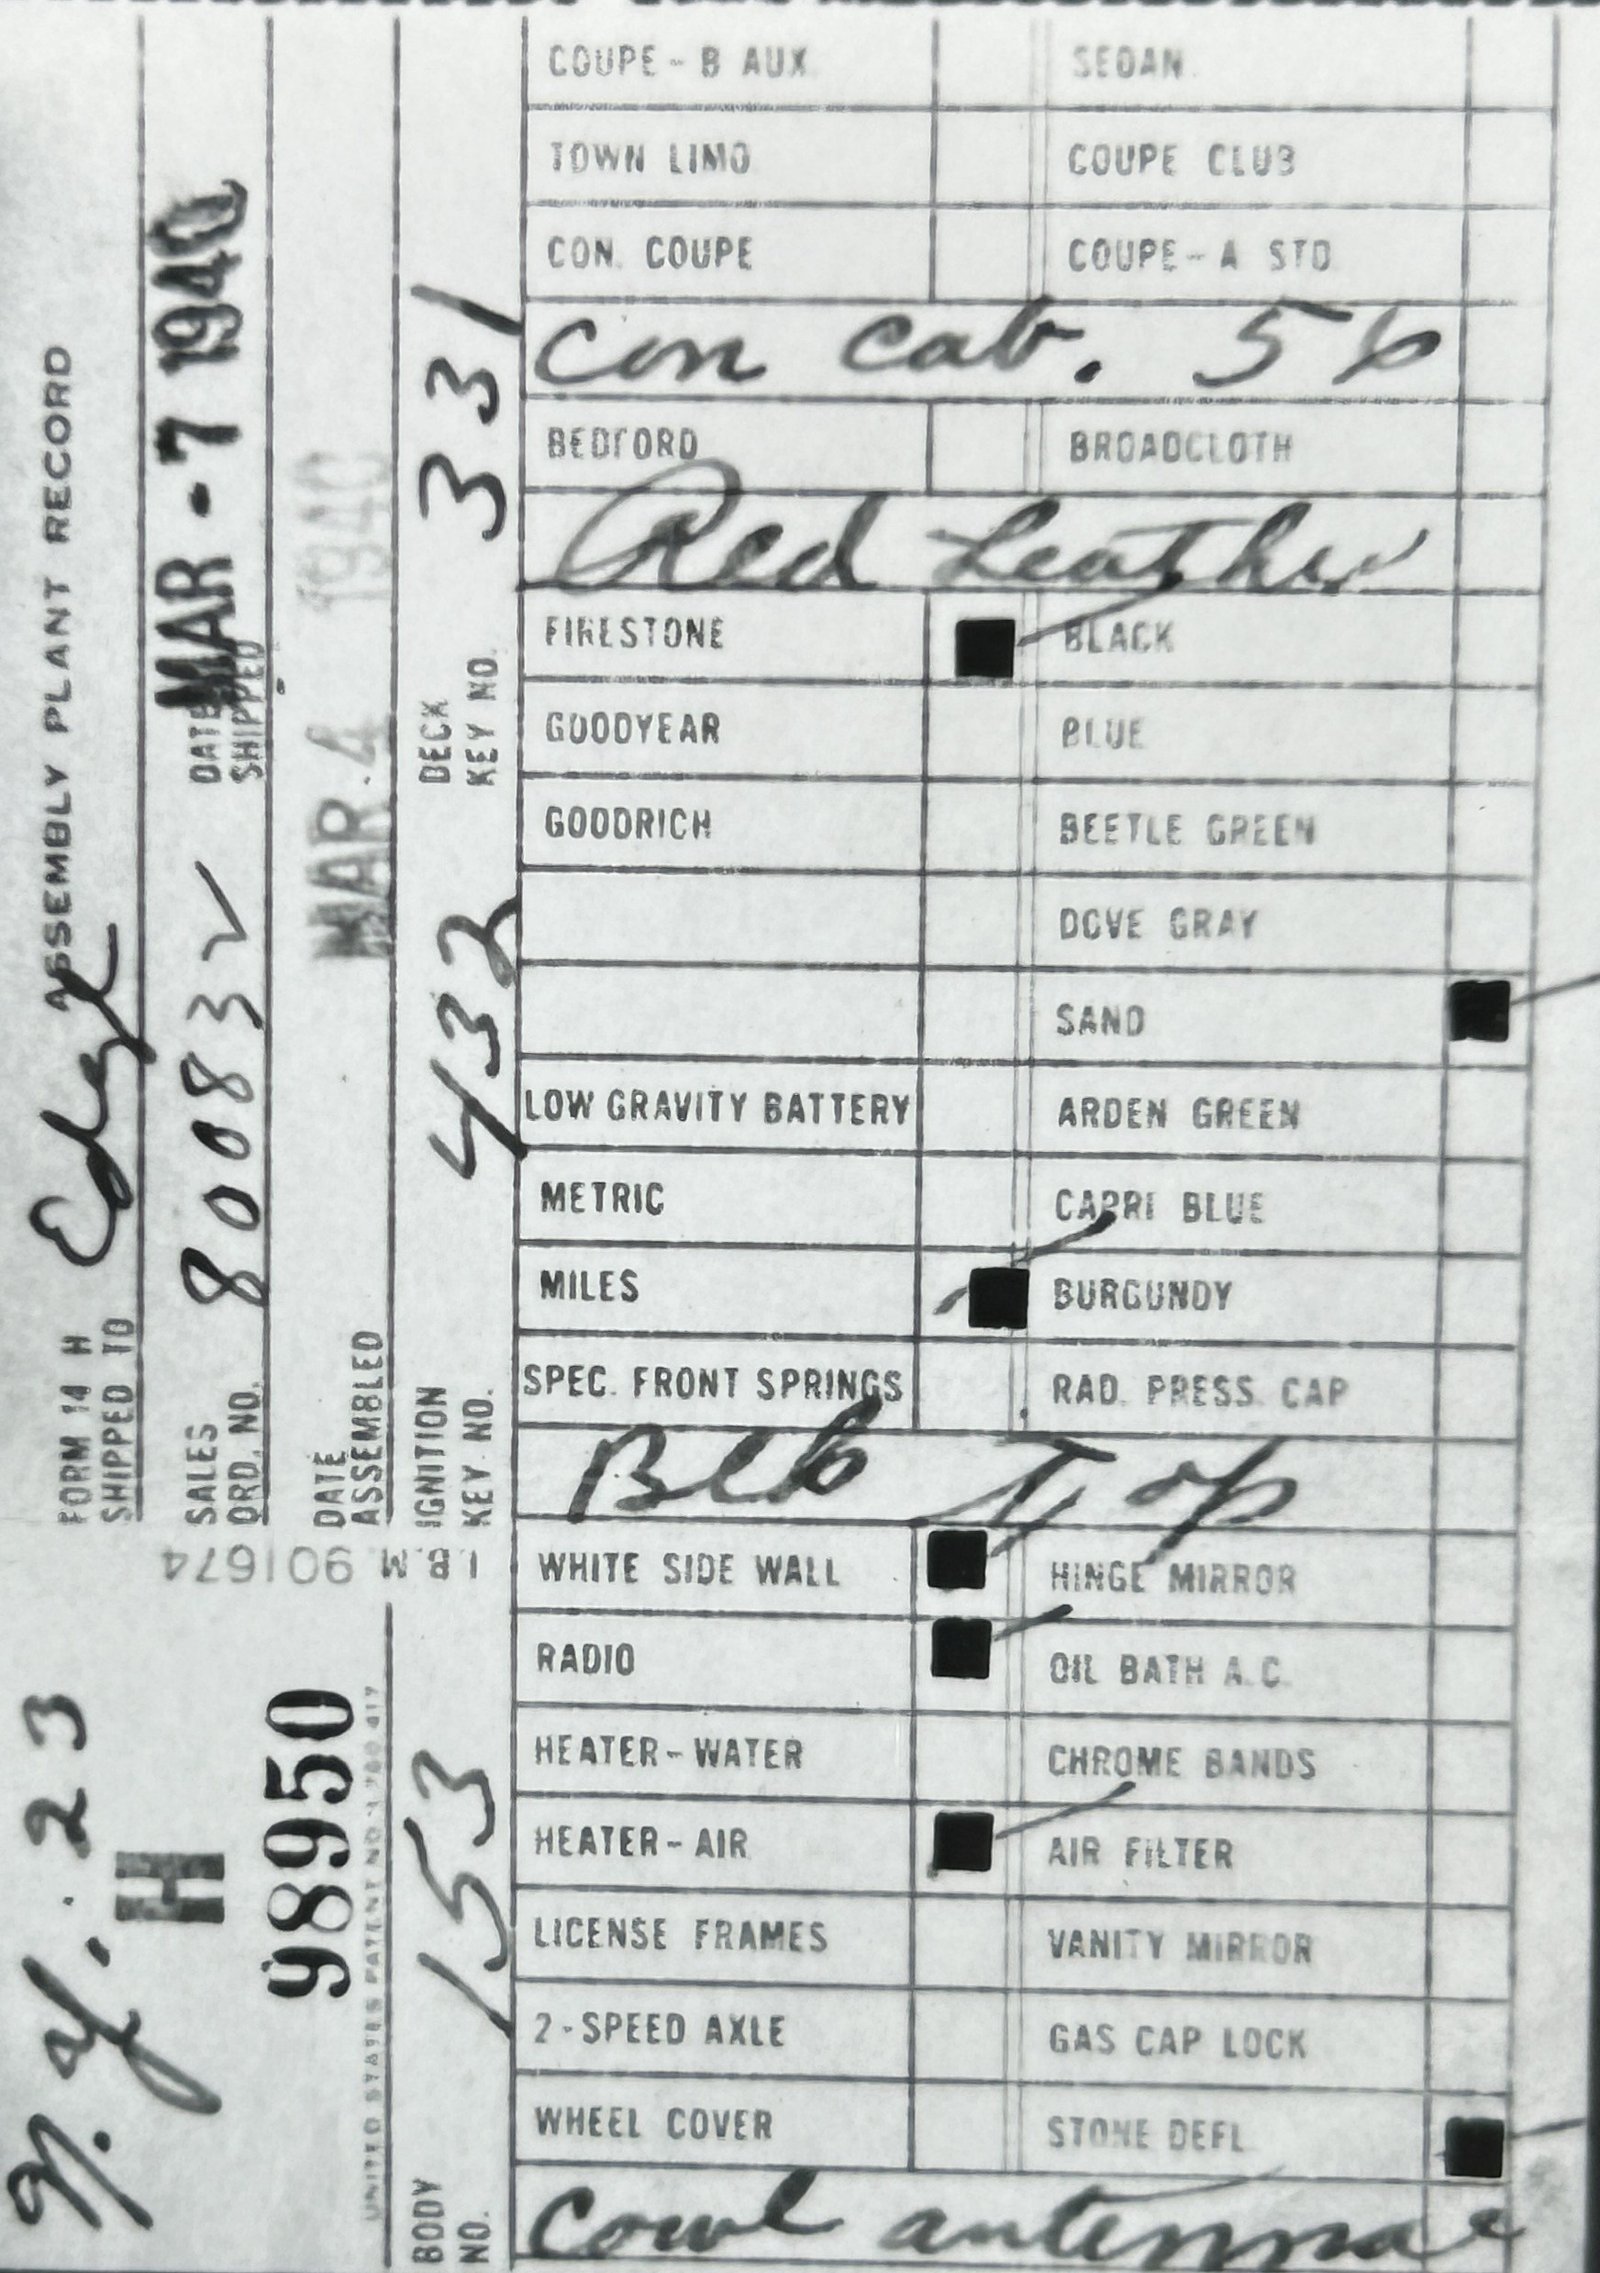 FORM 14 H ASSEMBLY PLANT RECORD
SHIPPED TO
SALES ORD. NO. 80083 DATE SHIPPED MAR - 7 1940
DATE ASSEMBLED MAR 4 1940
IGNITION KEY NO. 432 DECK KEY NO. 331
I.B.M. 901674
23
H
98950
UNITED STATES PATENT NO.
BODY NO. 153
COUPE - B AUX. SEDAN
TOWN LIMO COUPE CLUB
CON. COUPE COUPE - A STD
Con Cab. 56
BEDFORD BROADCLOTH
Red Leather
FIRESTONE BLACK
GOODYEAR BLUE
GOODRICH BEETLE GREEN
DOVE GRAY
SAND
LOW GRAVITY BATTERY ARDEN GREEN
METRIC CAPRI BLUE
MILES BURGUNDY
SPEC. FRONT SPRINGS RAD. PRESS. CAP
Blk Top
WHITE SIDE WALL HINGE MIRROR
RADIO OIL BATH A.C.
HEATER - WATER CHROME BANDS
HEATER - AIR AIR FILTER
LICENSE FRAMES VANITY MIRROR
2 - SPEED AXLE GAS CAP LOCK
WHEEL COVER STONE DEFL.
Cowl antennae